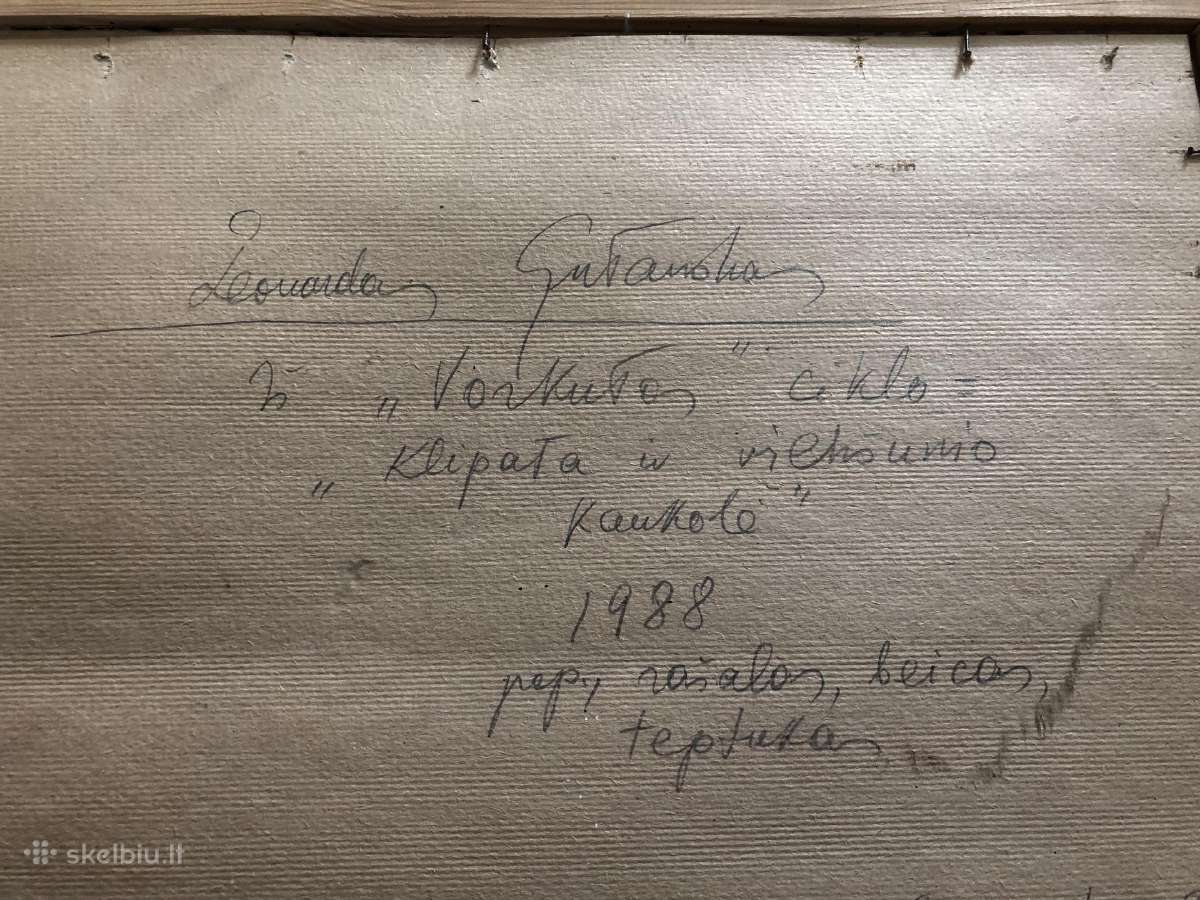 Leonardas Gutauskas
Iš „Vorkutos" ciklo =
„Klipata ir viešunio
kaukolė"
1988
pop., rašalas, beicas,
teptukas
skelbiu.lt